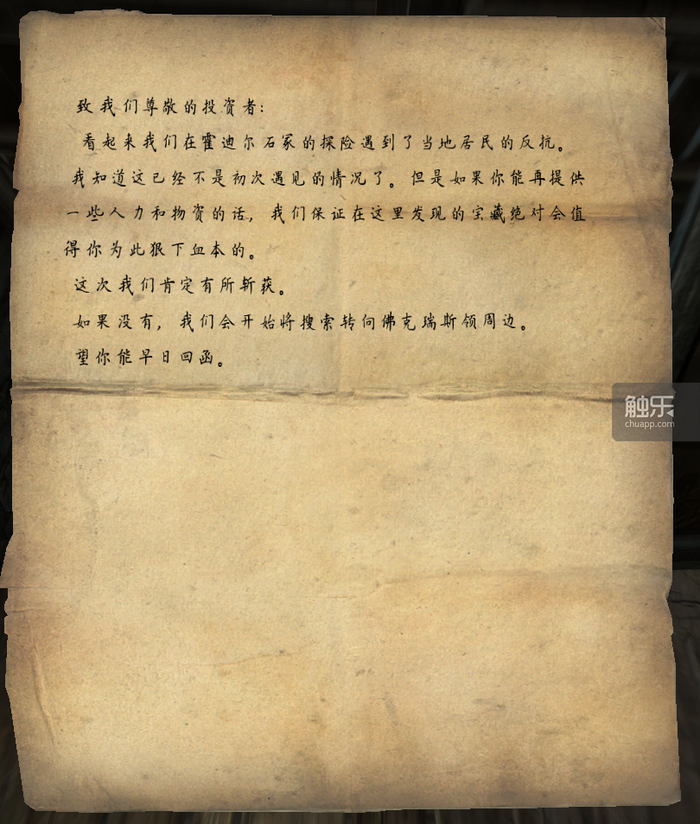 致我们尊敬的投资者:
看起来我们在霍迪尔石冢的探险遇到了当地居民的反抗。
我知道这已经不是初次遇见的情况了。但是如果你能再提供
一些人力和物资的话，我们保证在这里发现的宝藏绝对会值
得你为此狠下血本的。
这次我们肯定有所斩获。
如果没有，我们会开始将搜索转向佛克瑞斯领周边。
望你能早日回函。
触乐
chuapp.com